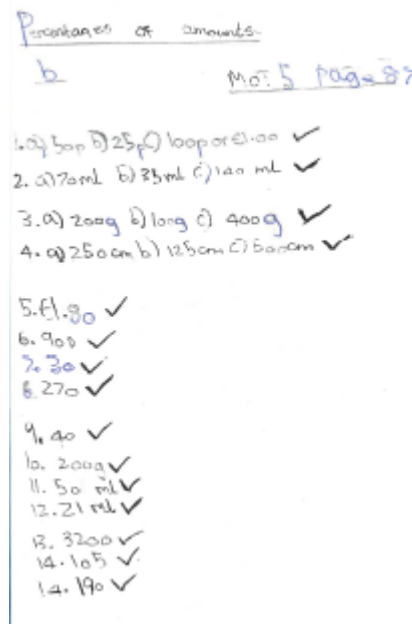 Percentages of amounts
b
MOT 5 Page 87
1.a) 50p b) 25p c) 100p or £1.00 ✓
2. a) 70ml b) 35ml c) 140 ml ✓
3.a) 200g b) 100g c) 400g ✓
4. a) 250cm b) 125cm c) 500cm ✓
5. £1.80 ✓
6. 900 ✓
7. 30 ✓
8. 270 ✓
9. 40 ✓
10. 200g ✓
11. 50 ml ✓
12. 21 ml ✓
13. 3200 ✓
14. 105 ✓
14. 190 ✓